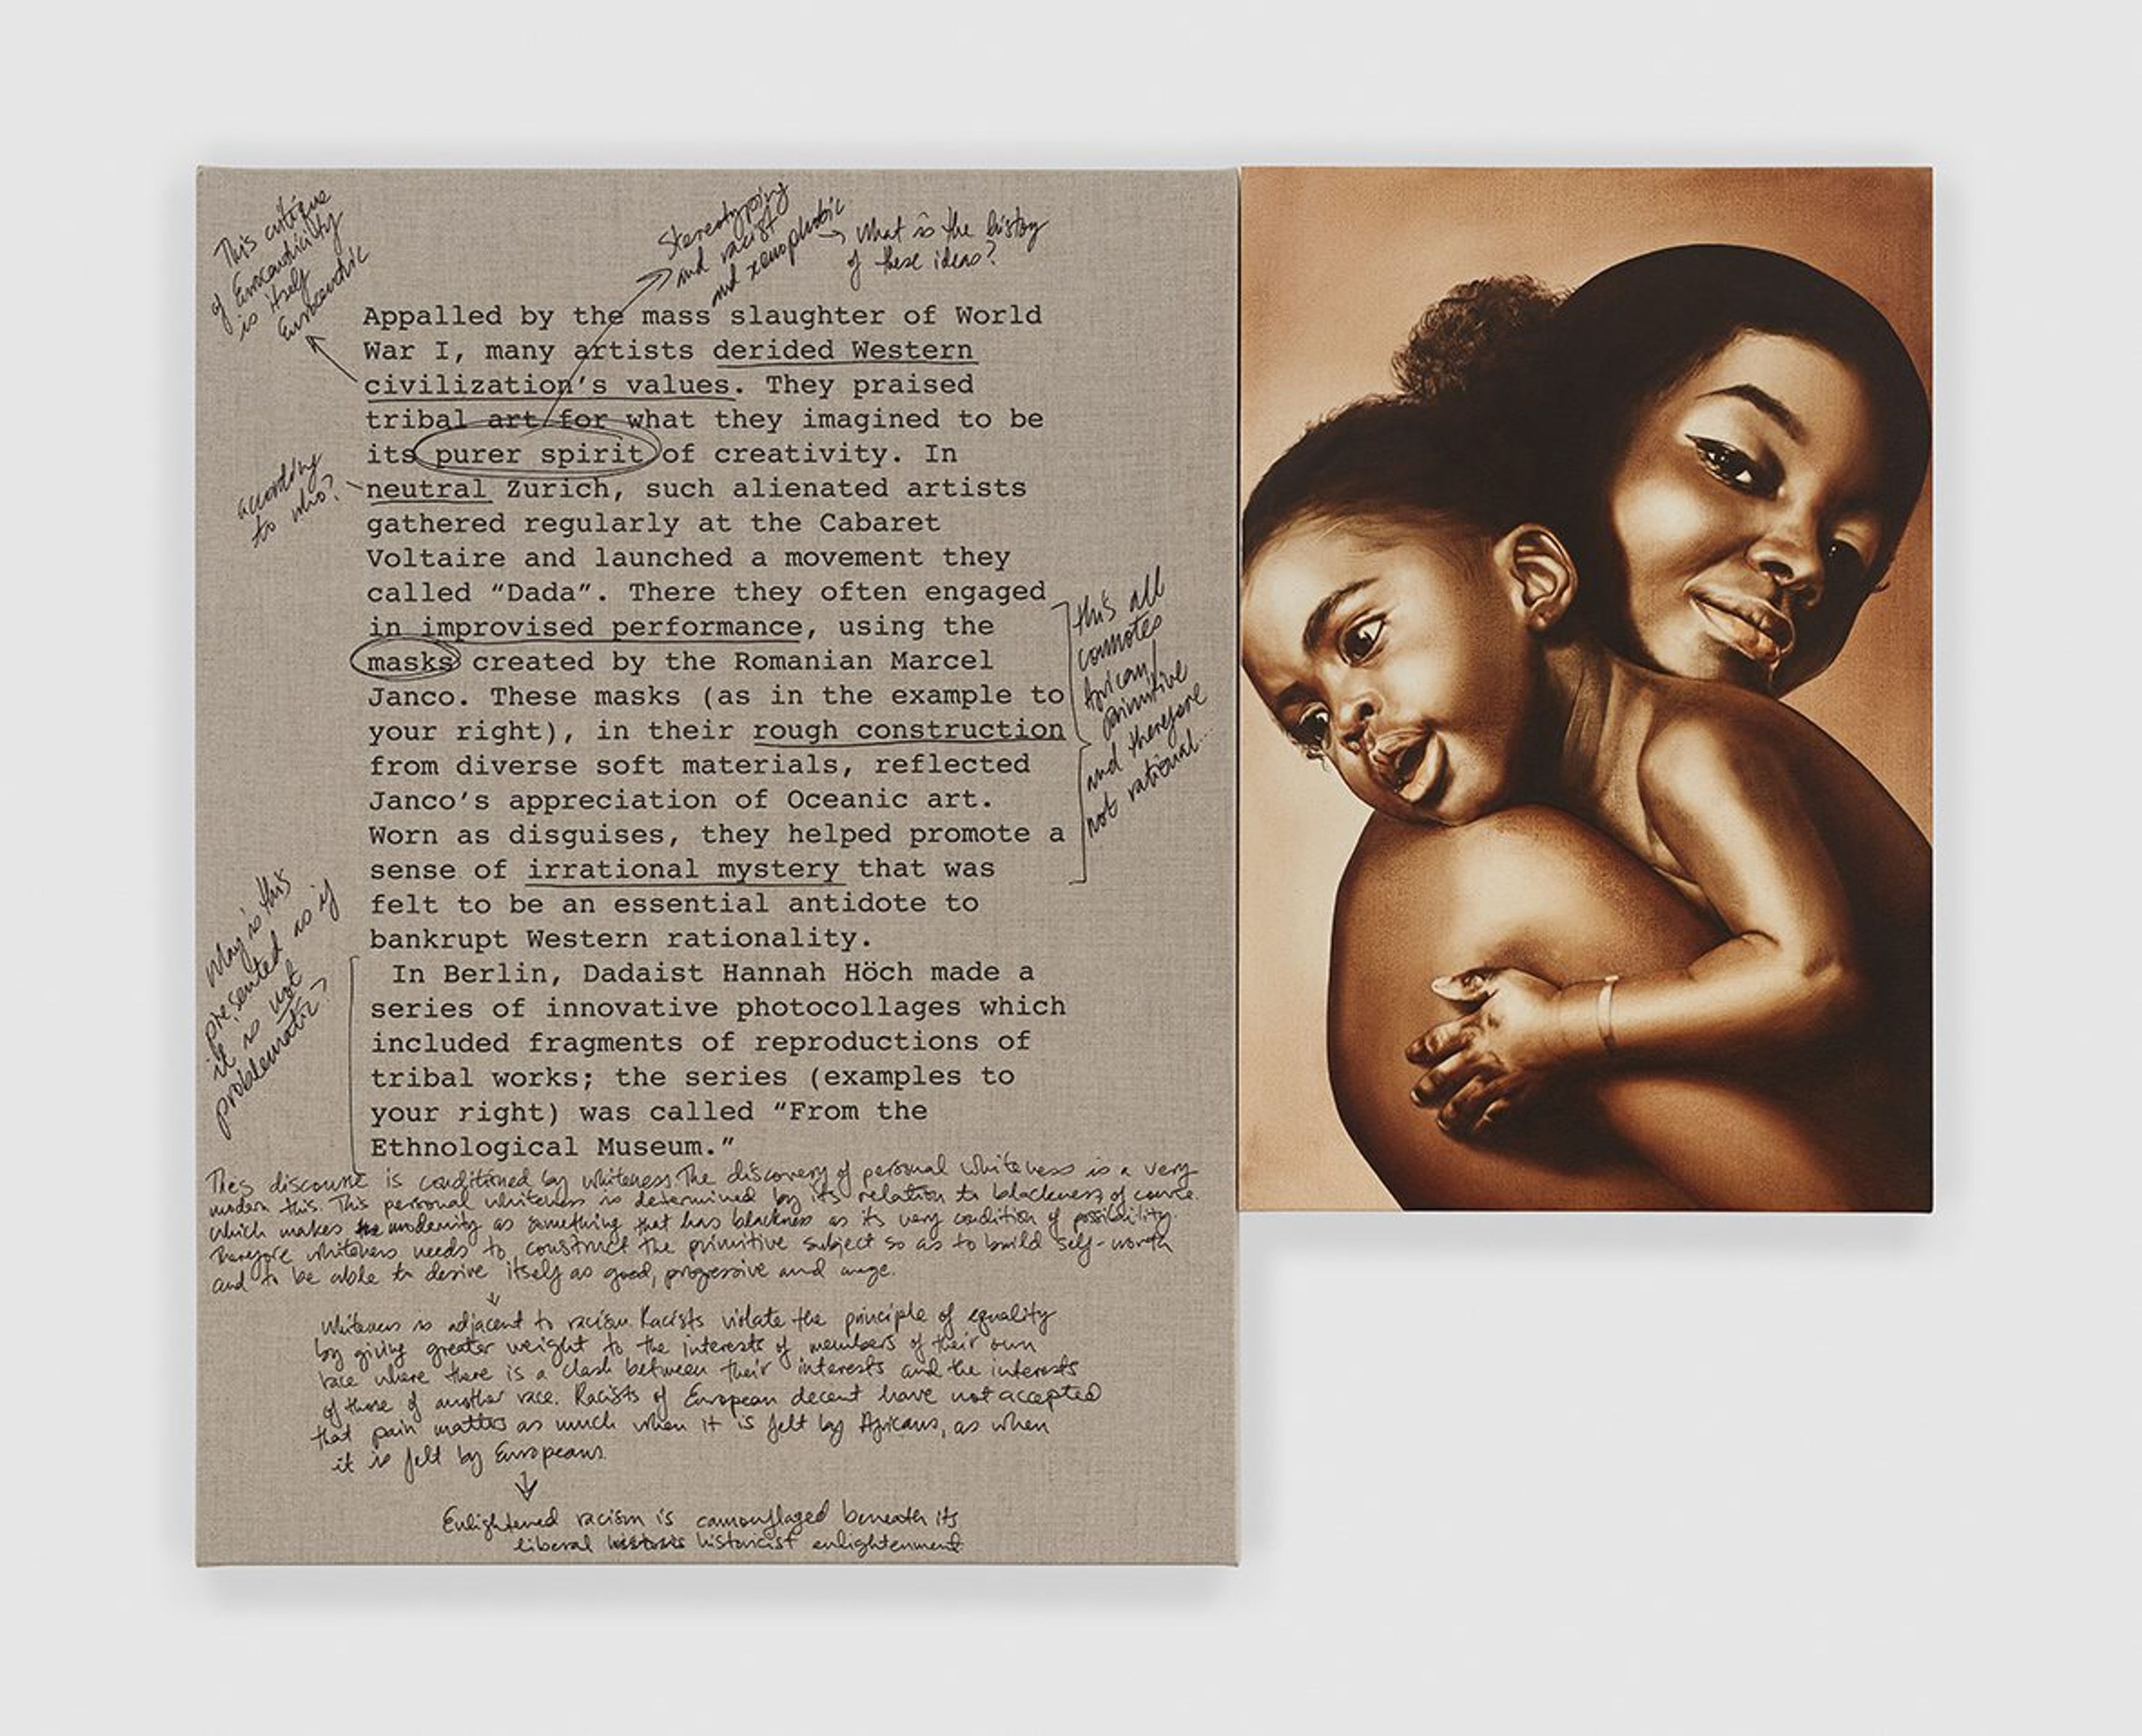 This critique
of Eurocentricity
is itself
Eurocentric
Stereotyping
and racist
and xenophobic
what is the history
of these ideas?
Appalled by the mass slaughter of World
War I, many artists derided Western
civilization’s values. They praised
tribal art for what they imagined to be
its purer spirit of creativity. In
according
to who?
neutral Zurich, such alienated artists
gathered regularly at the Cabaret
Voltaire and launched a movement they
called “Dada”. There they often engaged
in improvised performance, using the
masks created by the Romanian Marcel
Janco. These masks (as in the example to
your right), in their rough construction
from diverse soft materials, reflected
Janco’s appreciation of Oceanic art.
Worn as disguises, they helped promote a
sense of irrational mystery that was
felt to be an essential antidote to
bankrupt Western rationality.
this all
connotes
African/
primitive
and therefore
not rational...
In Berlin, Dadaist Hannah Höch made a
series of innovative photocollages which
included fragments of reproductions of
tribal works; the series (examples to
your right) was called “From the
Ethnological Museum.”
is this
presented as if
it is not
problematic?
discourse is conditioned by whiteness. The discovery of personal whiteness is a very
modern this. This personal whiteness is determined by its relation to blackness of course.
which makes modernity as something that has blackness as its very condition of possibility.
Therefore whiteness needs to construct the primitive subject so as to build self-worth
and to be able to desire itself as good, progressive and
Whiteness is adjacent to racism. Racists violate the principle of equality
by giving greater weight to the interests of members of their own
race where there is a clash between their interests and the interests
of those of another race. Racists of European decent have not accepted
that pain matters as much when it is felt by Africans, as when
it is felt by Europeans.
Enlightened racism is camouflaged beneath its
liberal historicist enlightenment.